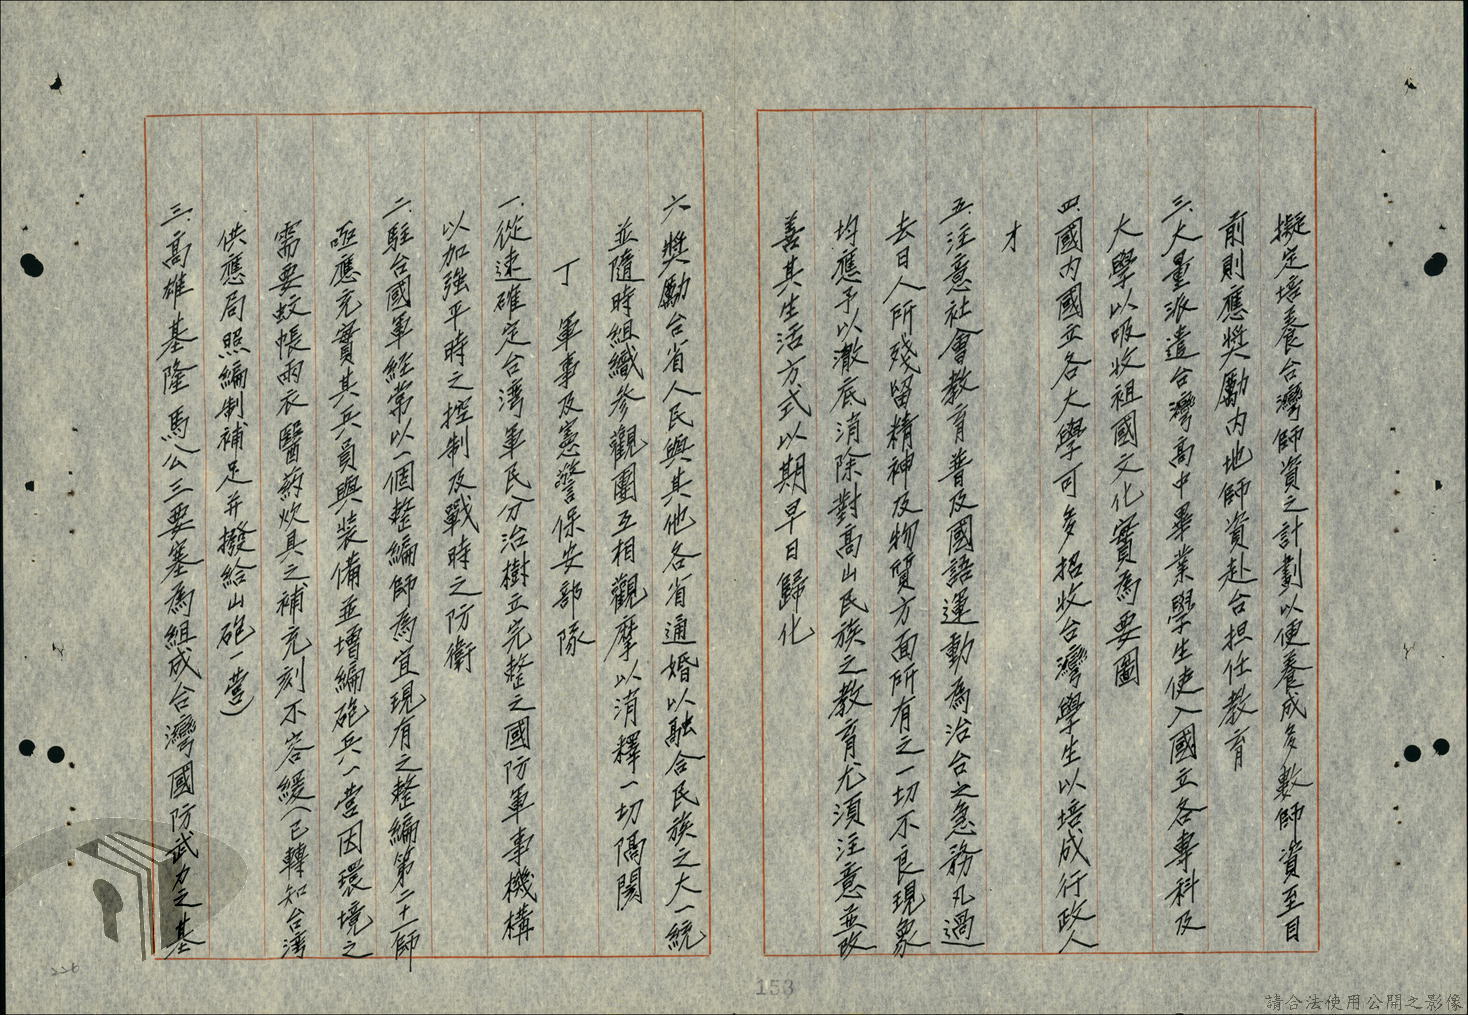 擬定培養台灣師資之計劃以便養成多數師資至目
前則應奬勵內地師資赴台担任教育
三.大量派遣台灣高中畢業學生使入國立各專科及
大學以吸收祖國文化實為要圖
四國內國立各大學可多招收台灣學生以培成行政人
才
五.注意社會教育普及國語運動為治台之急務凡過
去日人所殘留精神及物質方面所有之一切不良現象
均應予以澈底消除對高山民族之教育尤須注意並改
善其生活方式以期早日歸化
六奬勵台省人民與其他各省通婚以融合民族之大一統
並隨時組織參觀團互相觀摩以消釋一切隔閡
丁 軍事及憲警保安部隊
一.從速確定台湾軍民分治樹立完整之國防軍事機構
以加強平時之控制及戰時之防衛
二.駐台國軍經常以一個整編師為宜現有之整編第二十一師
亟應充實其兵員與裝備並增編砲兵一營因環境之
需要蚊帳雨衣醫葯炊具之補充刻不容緩(已轉知台灣
供應局照編制補足并撥給山砲一營)
三.高雄基隆馬公三要塞為組成台灣國防武力之基
226
153
請合法使用公開之影像